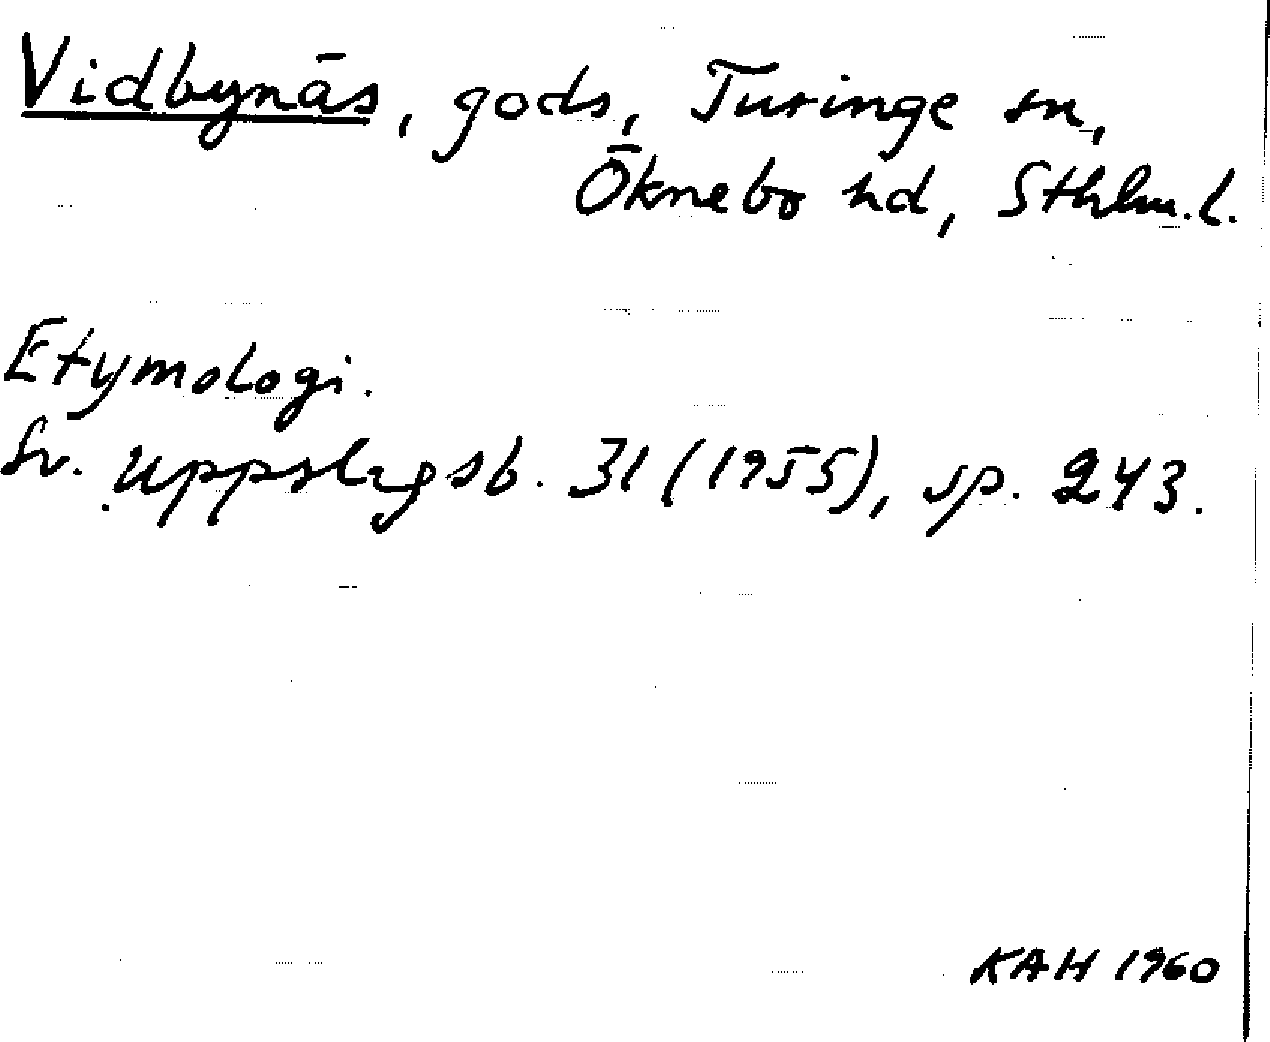 Vidbynäs, gods, Turinge sn,
Öknebo hd, Sthlm.l.
Etymologi.
Sv. uppslagsb. 31 (1955), sp. 243.
KAH 1960